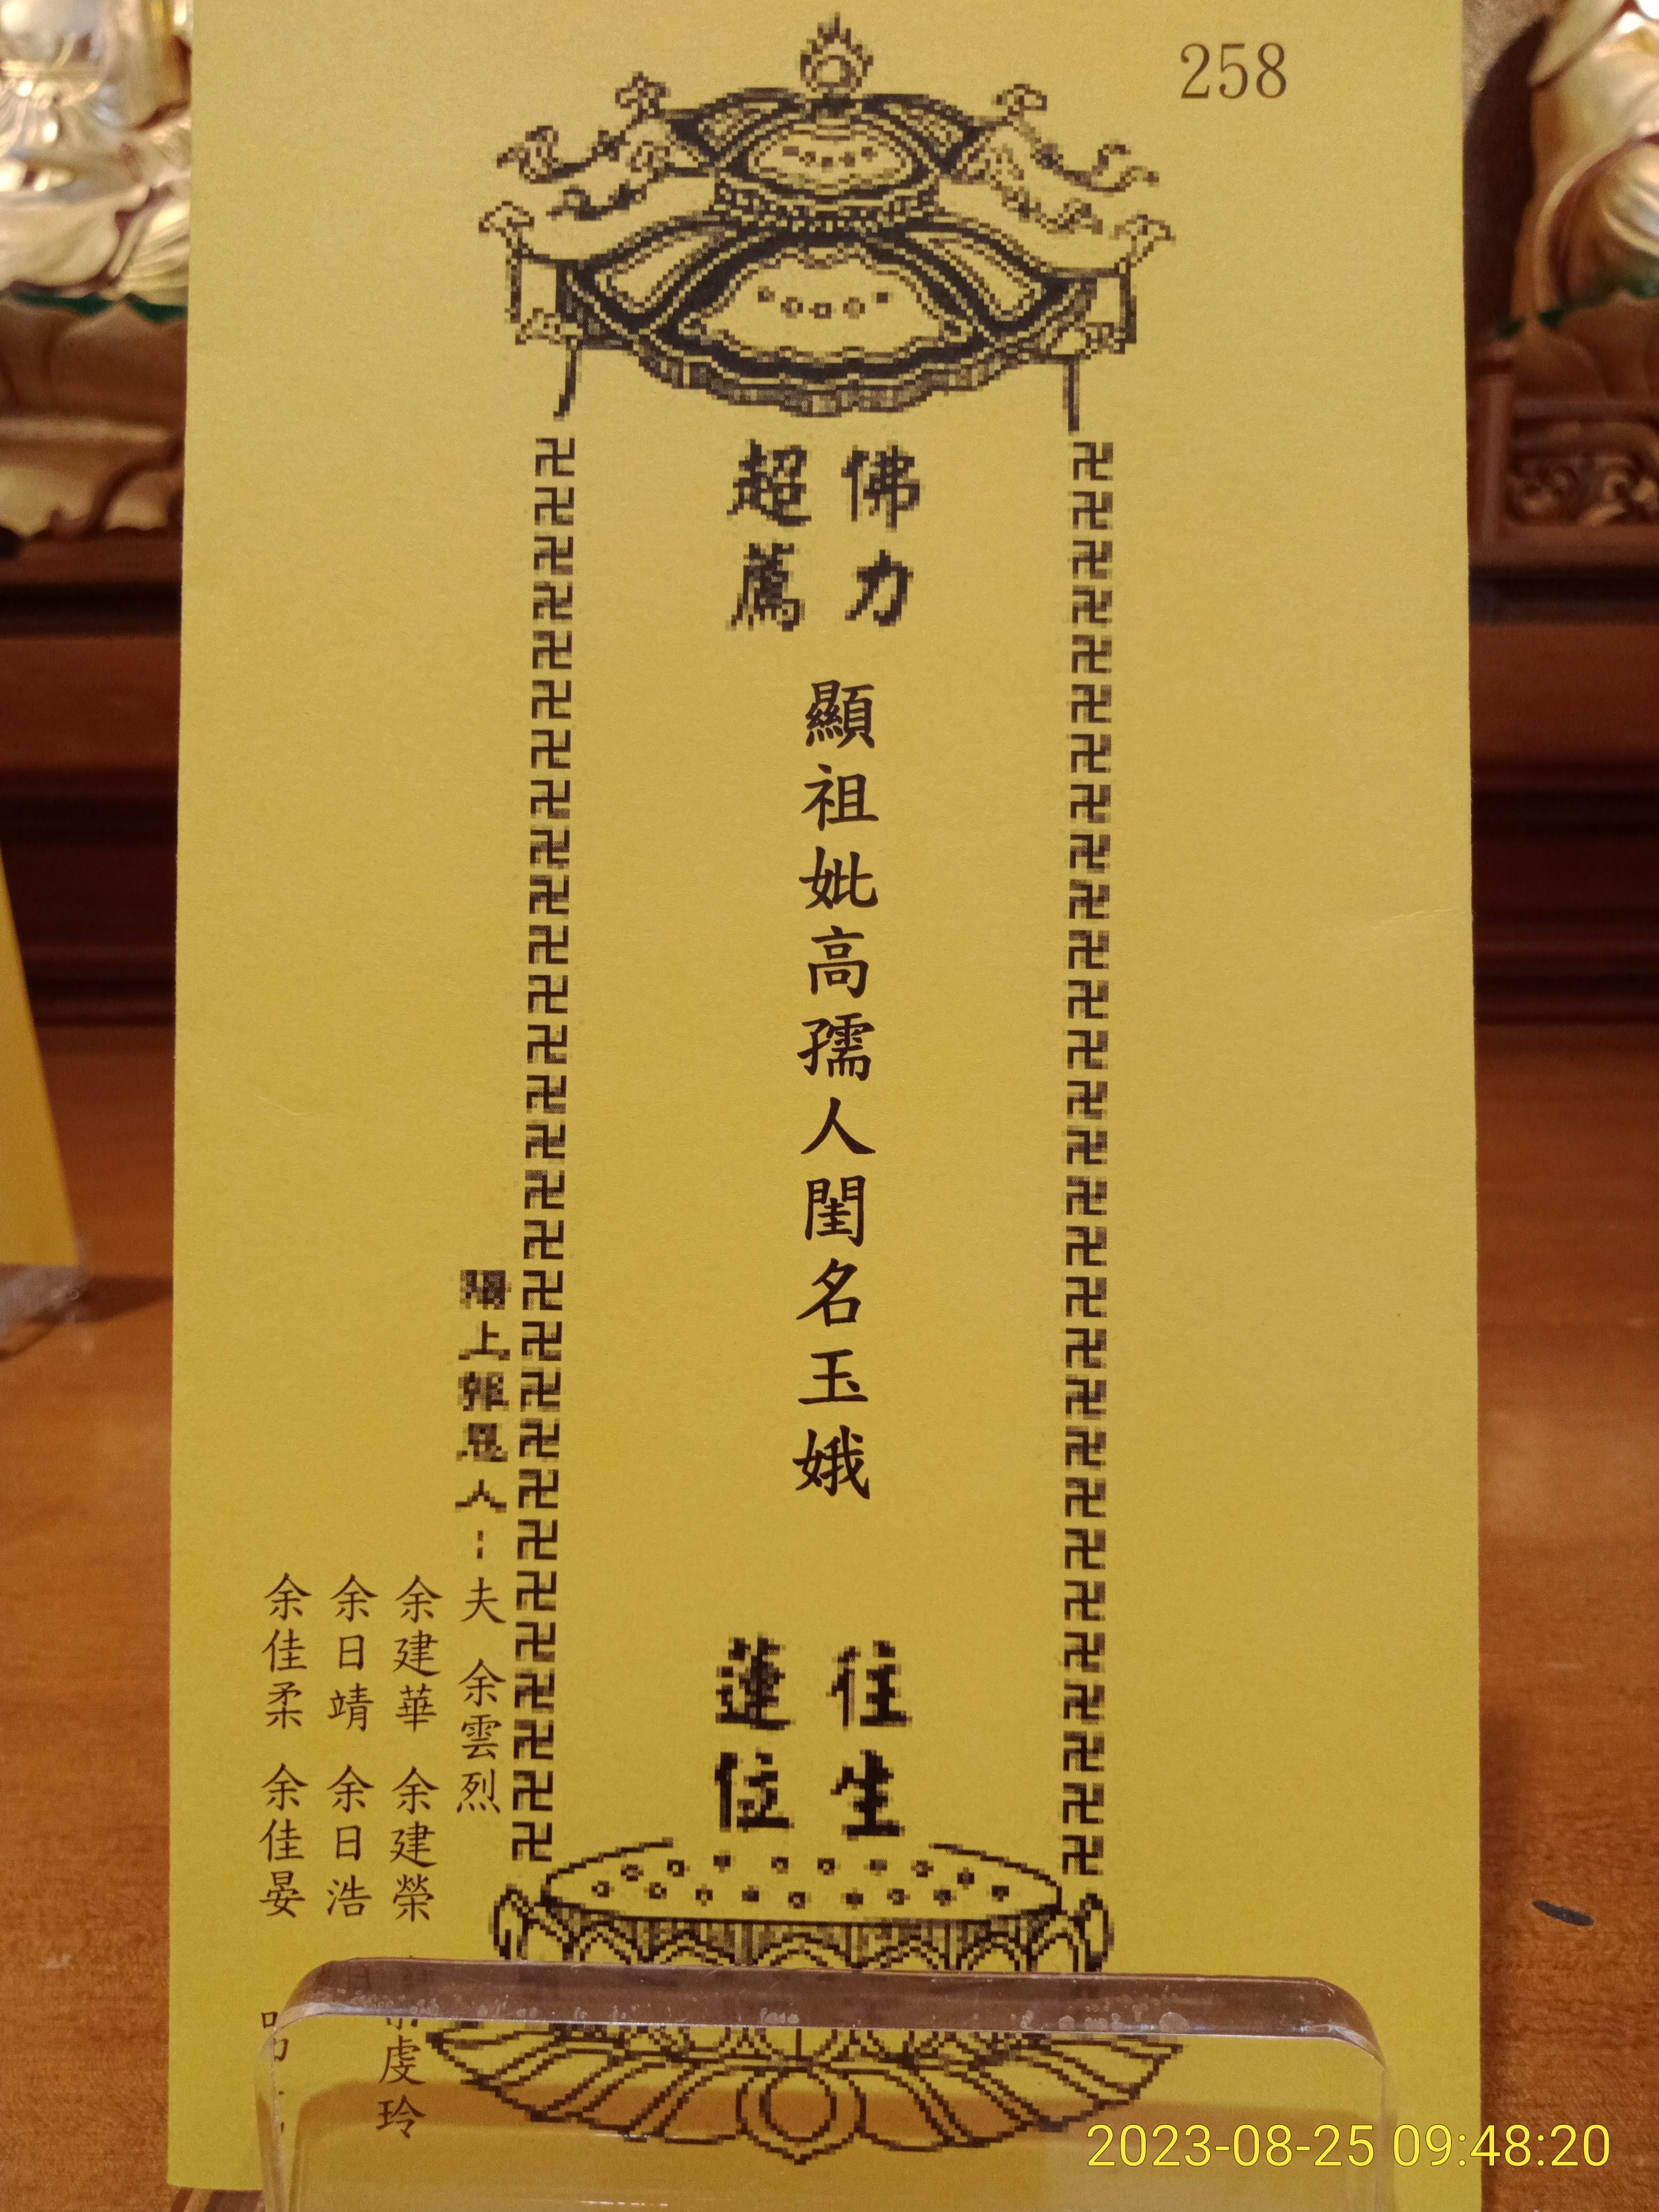 258
佛力
超薦
顯祖妣高孺人閨名玉娥
往生
蓮位
陽上報恩人：夫 余雲烈
余建華 余建榮 虔玲
余日靖 余日浩
余佳柔 余佳晏
2023-08-25 09:48:20